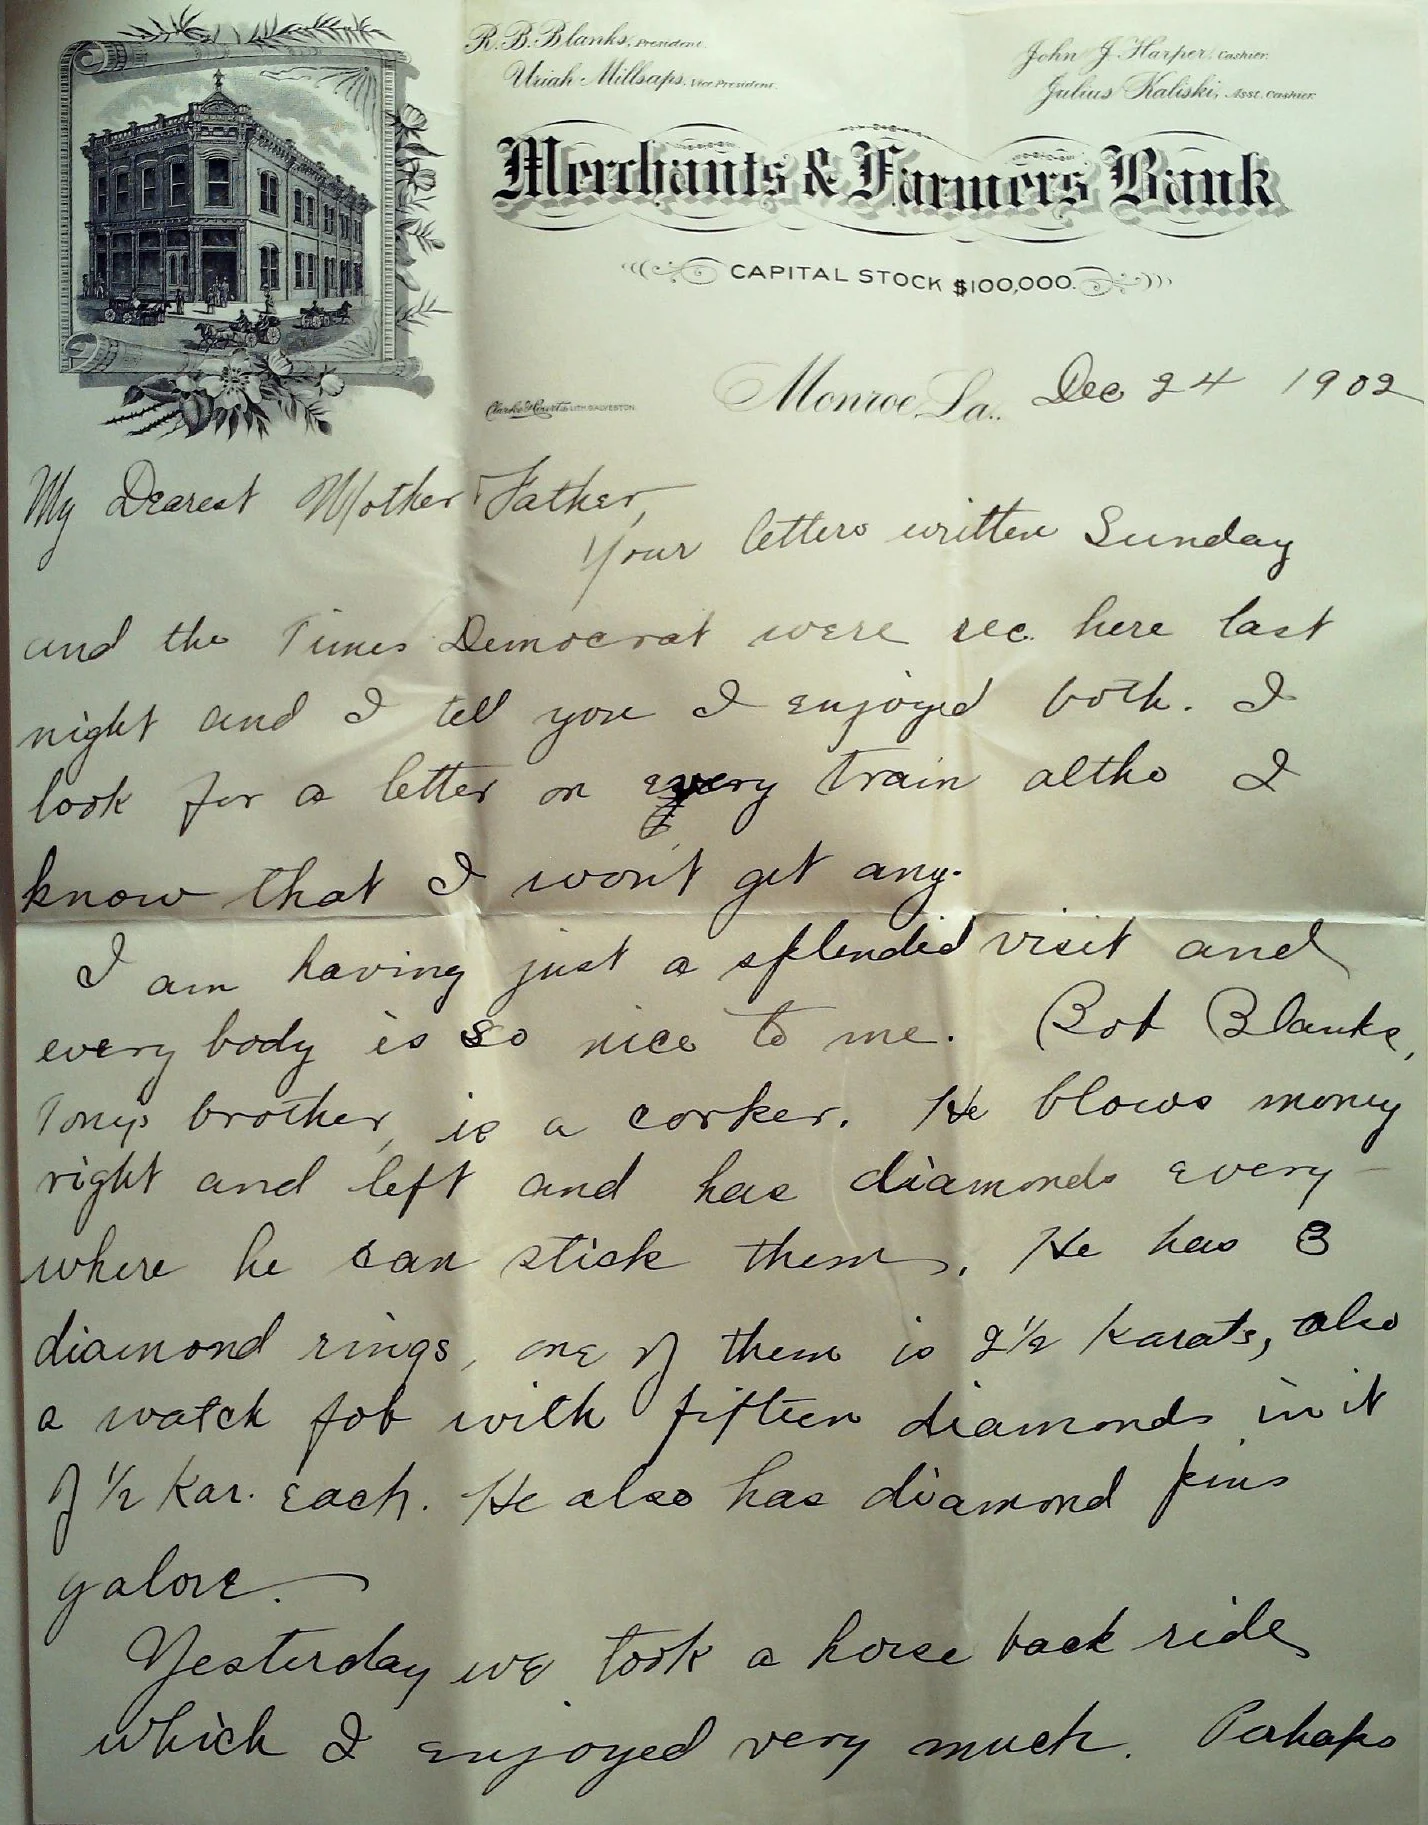 R. B. Blanks, President.
Uriah Millsaps, Vice President.
John J. Harper, Cashier.
Julius Kaliski, Asst. Cashier.
Merchants & Farmers Bank
CAPITAL STOCK $100,000.
Monroe, La., Dec 24 1902
Clarke & Courts LITH GALVESTON.
My Dearest Mother Father,
Your letters written Sunday
and the Times Democrat were rec. here last
night and I tell you I enjoyed both. I
look for a letter on every train altho I
know that I won't get any.
I am having just a splendid visit and
every body is so nice to me. Bob Blanks,
Tony's brother, is a corker. He blows money
right and left and has diamonds every-
where he can stick them. He has 3
diamond rings, one of them is 2½ Karats, also
a watch fob with fifteen diamonds in it
of ½ Kar. each. He also has diamond pins
galore.
Yesterday we took a horse back ride
which I enjoyed very much. Perhaps